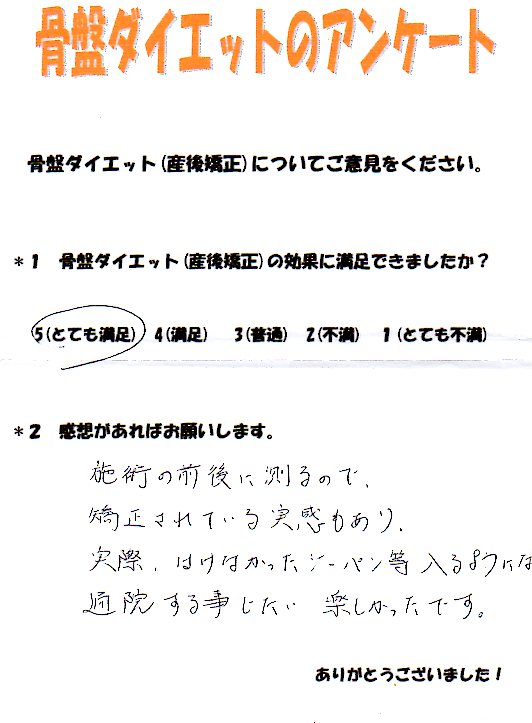 骨盤ダイエットのアンケート
骨盤ダイエット(産後矯正)についてご意見をください。
*1 骨盤ダイエット(産後矯正)の効果に満足できましたか?
5(とても満足) 4(満足) 3(普通) 2(不満) 1(とても不満)
*2 感想があればお願いします。
施術の前後に測るので、
矯正されている実感もあり、
実際、はけなかったジーパン等入るようには
通院する事じたい 楽しかったです。
ありがとうございました!